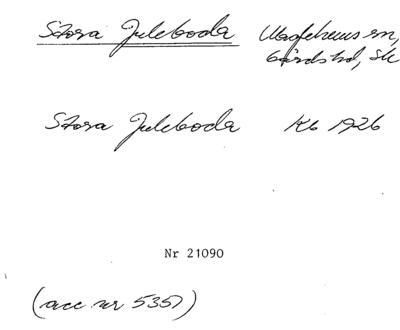 Stora Juleboda Maglehems sn,
Gärds hd, Sk
Stora Juleboda Kb 1926
Nr 21090
(acc nr 535)